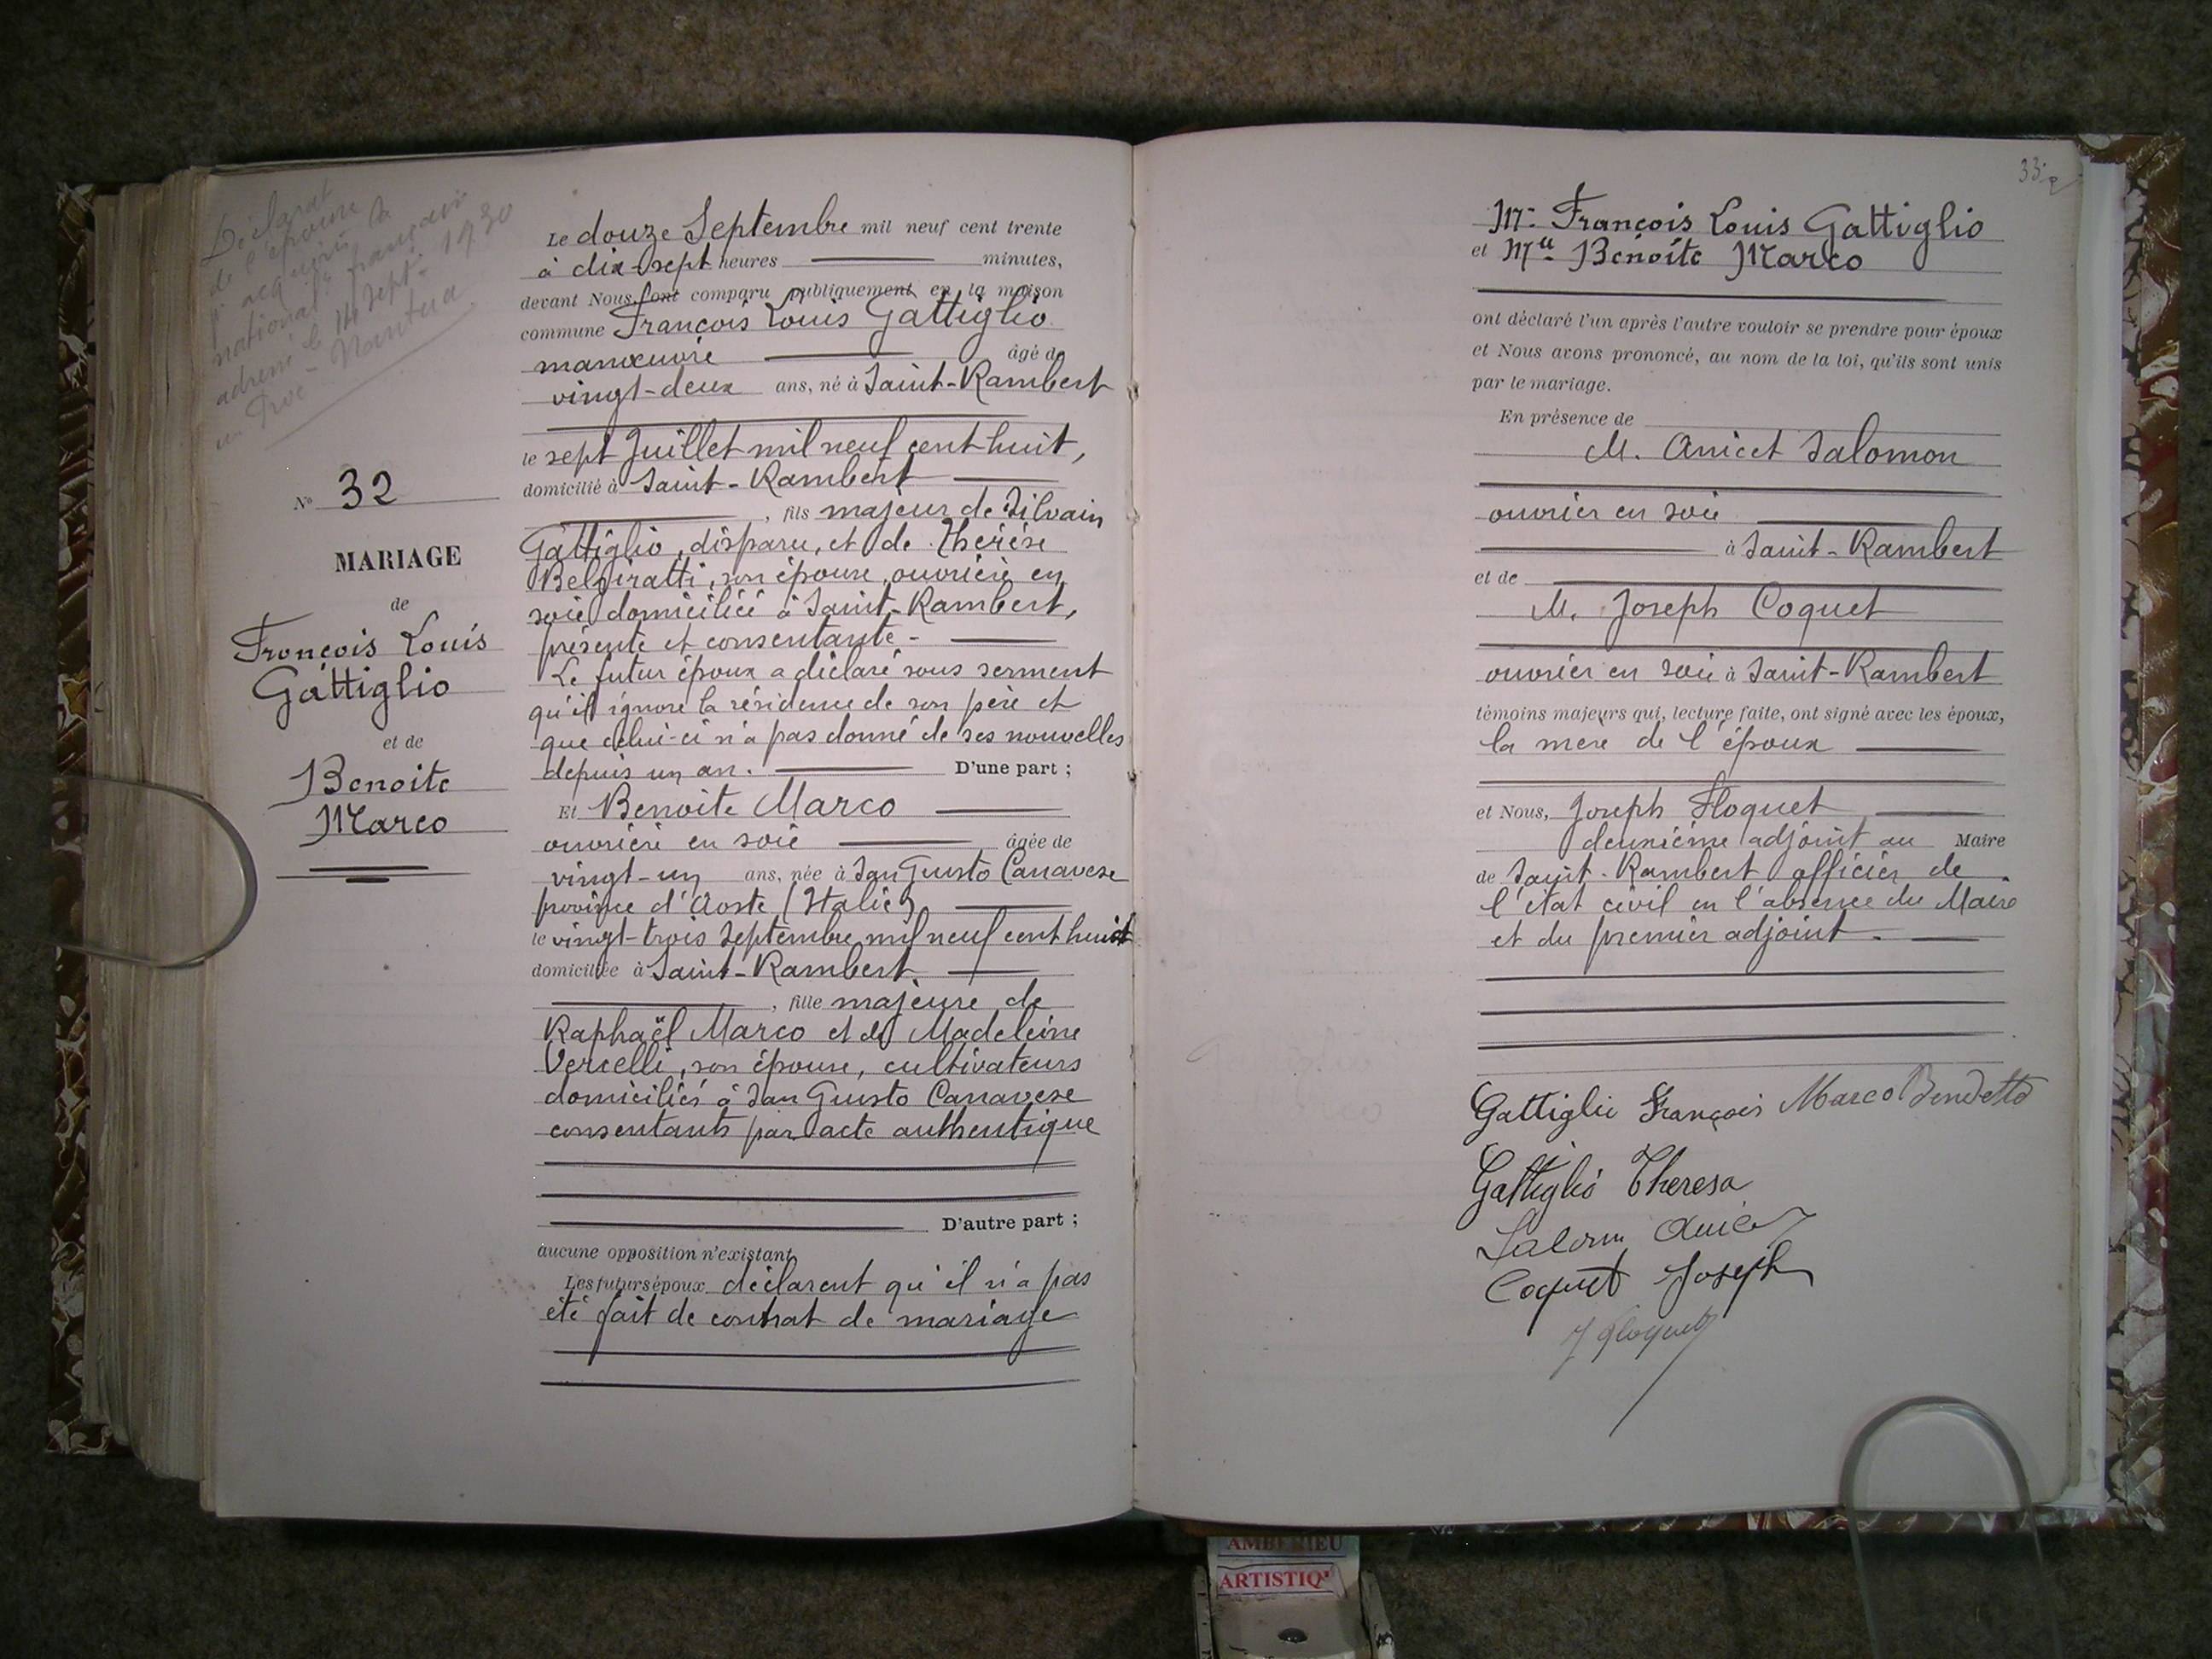 Déclarat
de l'épouse
p' acquérir la
national^té française
adressé le 14 sept. 1930
au Proc - Nantua
N° 32
MARIAGE
de
François Louis
Gattiglio
et de
Benoite
Marco
Le douze Septembre mil neuf cent trente
à dix-sept heures minutes,
devant Nous ont comparu publiquement en la maison
commune François Louis Gattiglio
manœuvre âgé de
vingt-deux ans, né à Saint-Rambert
le sept Juillet mil neuf cent huit,
domicilié à Saint-Rambert
, fils majeur de Silvain
Gattiglio, disparu, et de Thérèse
son épouse, ouvrière en
soie domiciliée à Saint-Rambert,
présente et consentante -
Le futur époux a déclaré sous serment
qu'il ignore la résidence de son père et
que celui-ci n'a pas donné de ses nouvelles
depuis un an. D'une part ;
Et Benoite Marco
ouvrière en soie âgée de
vingt-un ans, née à San Giusto Canavese
province d'Aoste (Italie)
le vingt-trois Septembre mil neuf cent huit
domiciliée à Saint-Rambert
, fille majeure de
Raphaël Marco et de Madeleine
Vercelli, son épouse, cultivateurs
domiciliés à San Giusto Canavese
consentants par acte authentique
D'autre part ;
aucune opposition n'existant
Les futurs époux déclarent qu'il n'a pas
été fait de contrat de mariage
33
M^r François Louis Gattiglio
et M^lle Benoîte Marco
ont déclaré l'un après l'autre vouloir se prendre pour époux
et Nous avons prononcé, au nom de la loi, qu'ils sont unis
par le mariage.
En présence de
M. Anicet Salomon
ouvrier en soie
à Saint-Rambert
et de
M. Joseph Coquet
ouvrier en soie à Saint-Rambert
témoins majeurs qui, lecture faite, ont signé avec les époux,
la mère de l'époux
et Nous, Joseph Floquet
deuxième adjoint au Maire
de Saint-Rambert officier de
l'état civil en l'absence du Maire
et du premier adjoint.
Gattiglio François Marco Bendetta
Gattiglio Theresa
Coquet Joseph
J Floquet
AMBERIEU
ARTISTIQ